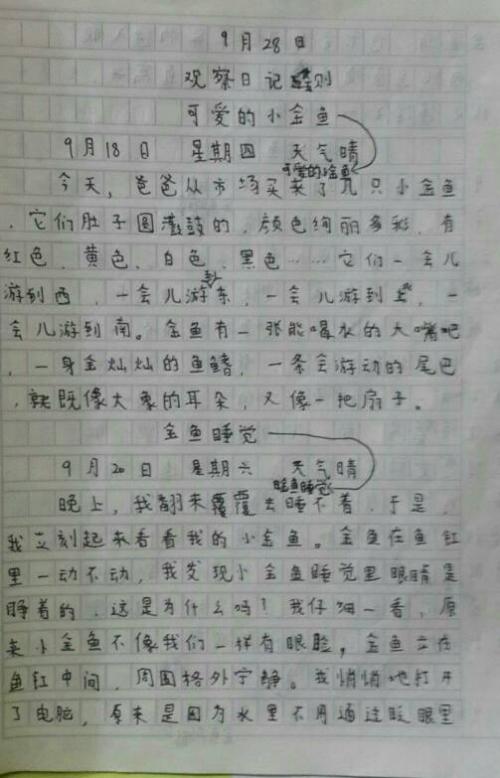 9月28日
观察日记 则
可爱的小金鱼
9月18日 星期四 天气晴
可爱的金鱼
今天，爸爸从市场买来了几只小金鱼
，它们肚子圆鼓鼓的，颜色绚丽多彩，有
红色、黄色、白色、黑色……它们一会儿
游到西，一会儿游到东，一会儿游到北，一
会儿游到南。金鱼有一张能喝水的大嘴吧
，一身金灿灿的鱼鳍，一条会游动的尾巴
，就既像大象的耳朵，又像一把扇子。
金鱼睡觉
9月20日 星期六 天气晴
金鱼睡觉
晚上，我翻来覆覆去睡不着，于是，
我立刻起来看看我的小金鱼。金鱼在鱼缸
里一动不动，我发现小金鱼睡觉里眼睛是
睁着的，这是为什么吗？我仔细一看，原
来小金鱼不像我们一样有眼脸，金鱼立在
鱼缸中间，周围格外宁静。我悄悄地打开
了电脑，原来是因为水里不用通过眨眼里